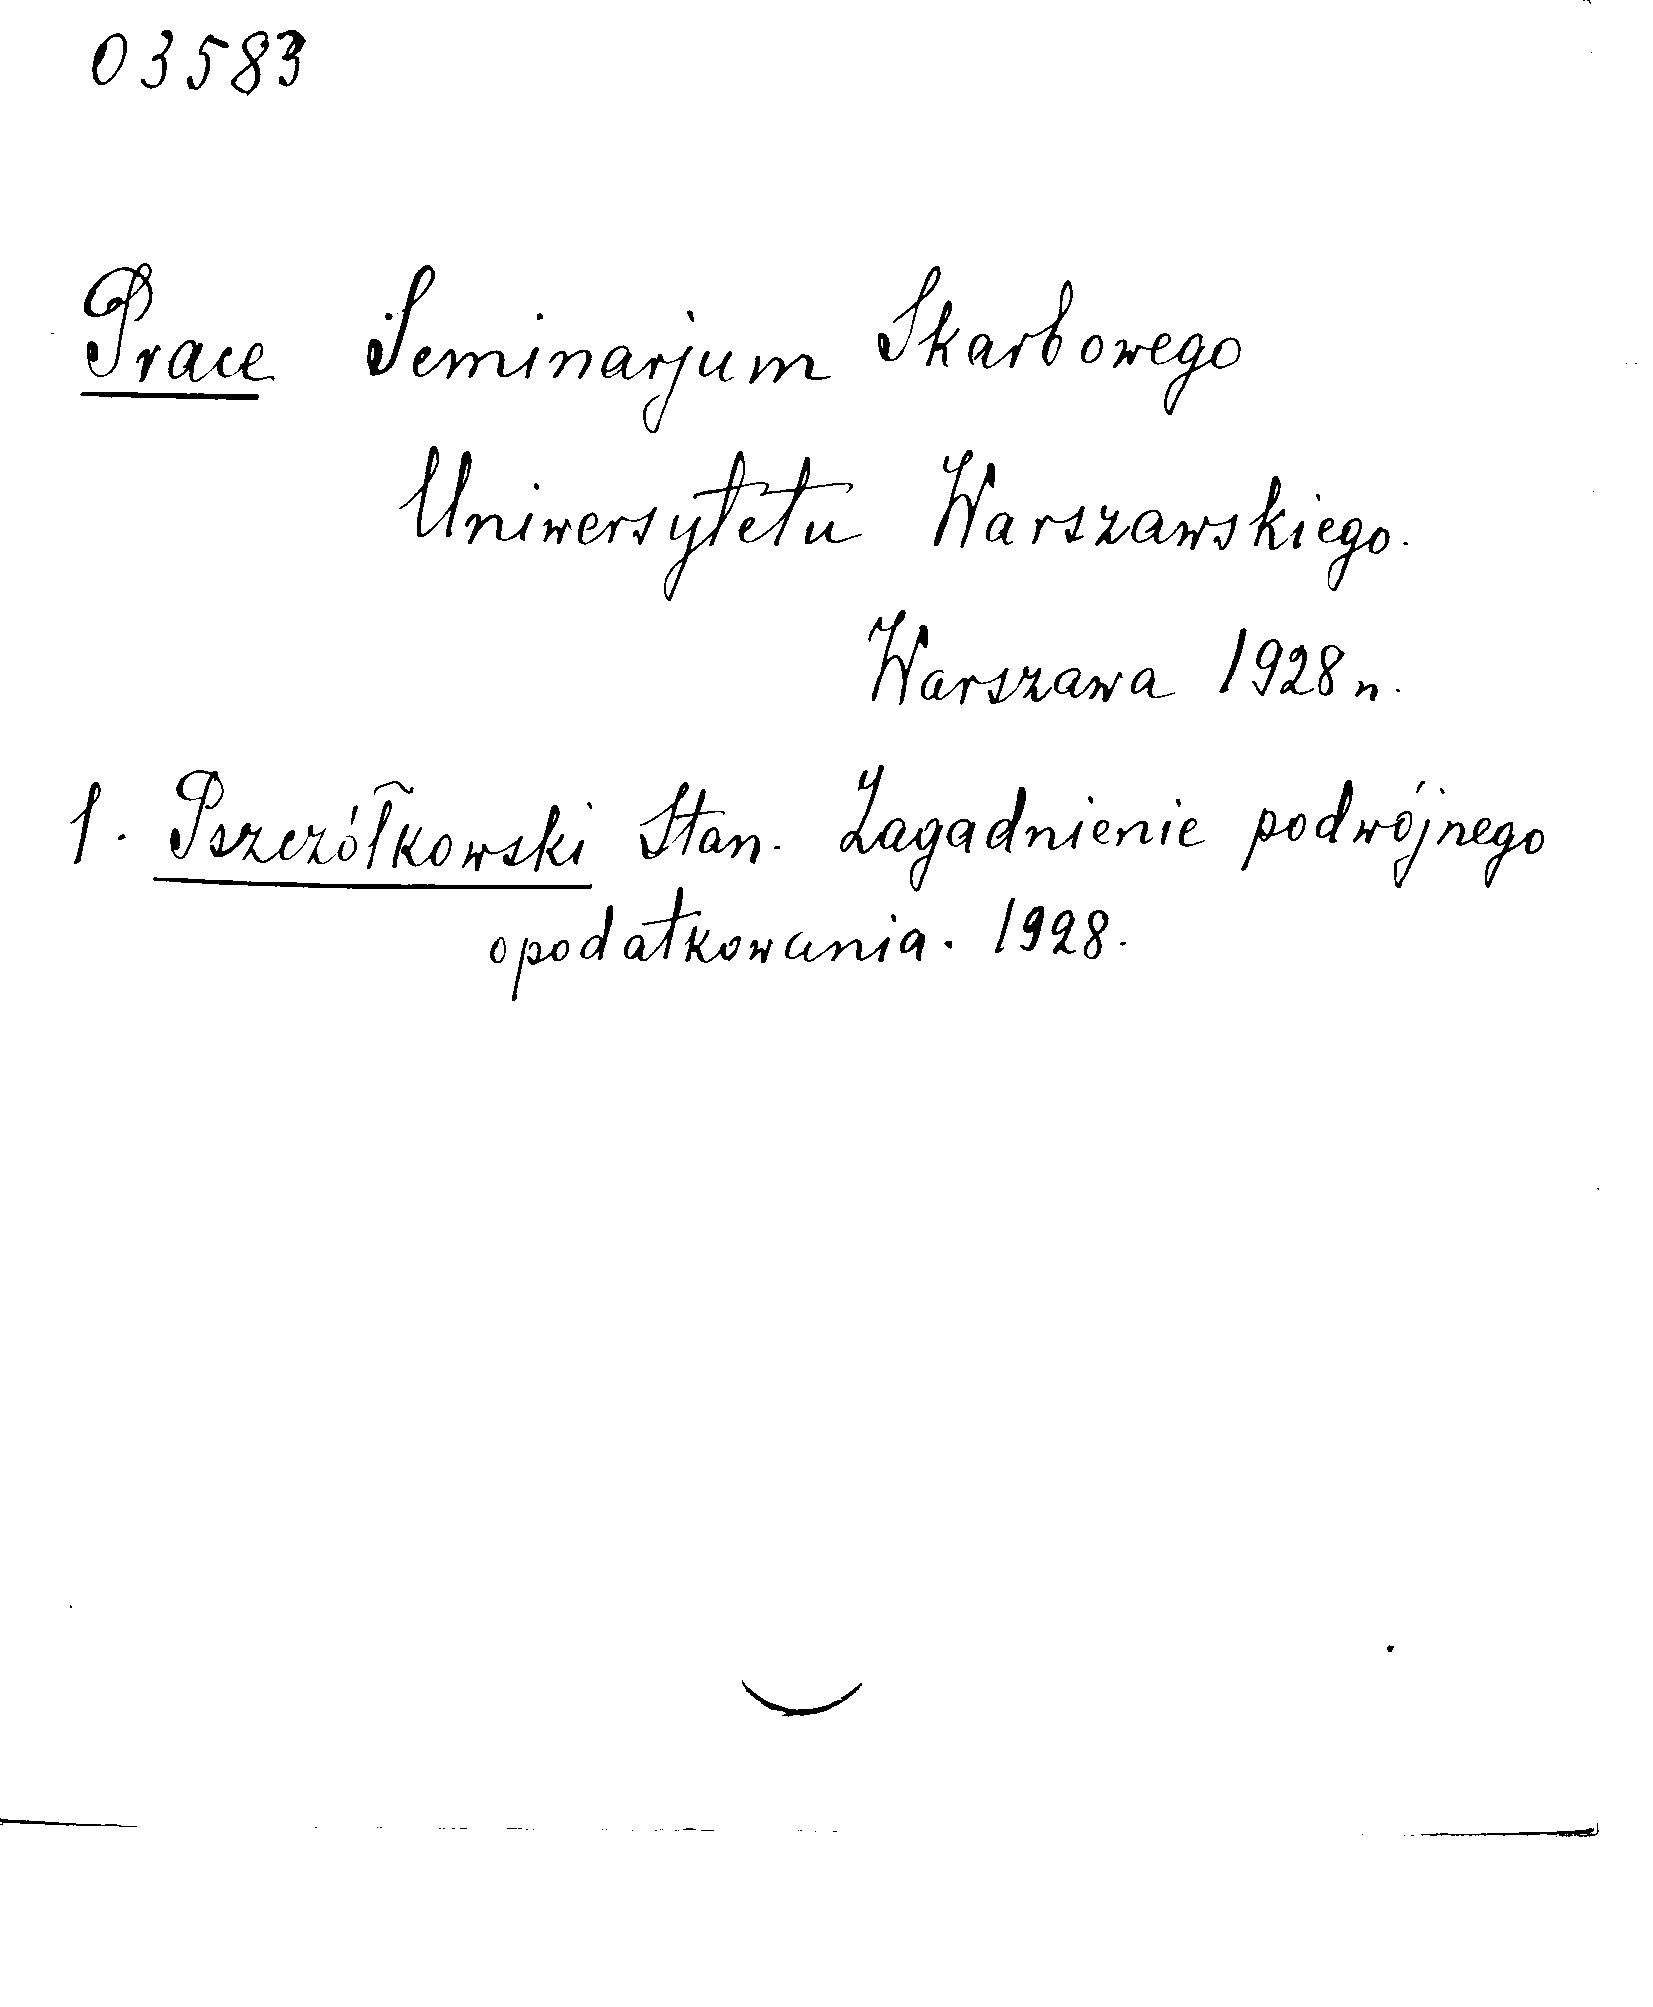 03583
Prace Seminarjum Skarbowego
Uniwersytetu Warszawskiego.
Warszawa 1928 n.
1. Pszczółkowski Stan. Zagadnienie podwójnego
opodatkowania. 1928.